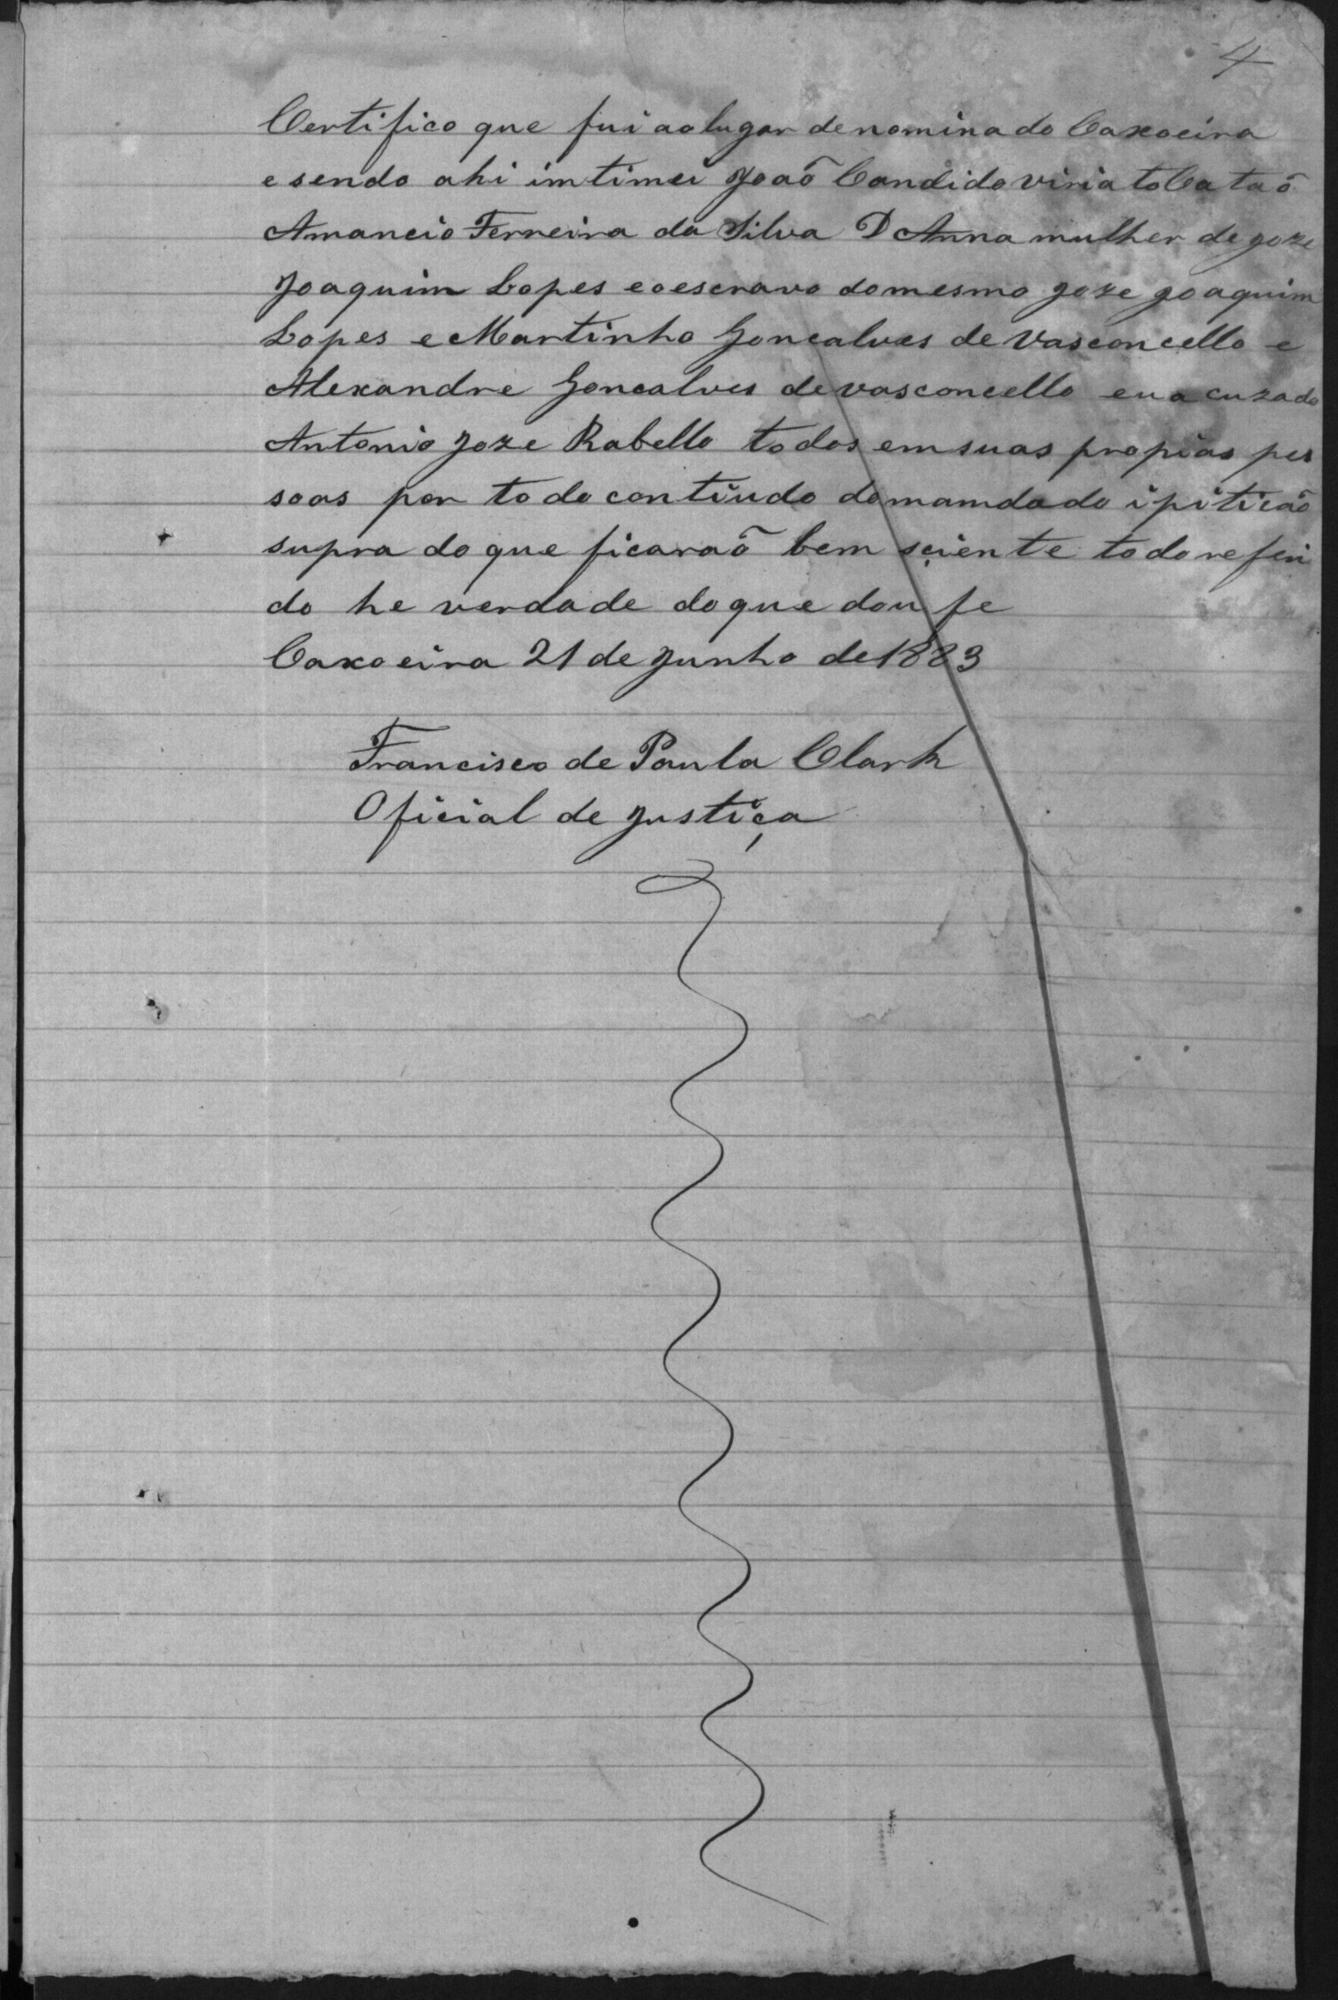 4
Certifico que fui ao lugar denominado Caxoeira
e sendo ahi imtimei Joaõ Candido viriato Cataõ
Amancio Ferreira da Silva D Anna mulher de Joze
Joaquim Lopes e o escravo do mesmo Joze Joaquim
Lopes e Martinho Goncalves de Vasconcello e
Alexandre Goncalves de vasconcello e u a cuzado
Antonio Joze Rabello todos em suas propias pes
soas por todo contiudo do mamdado i piticaõ
supra do que ficaraõ bem sciente todo referi
do he verdade do que dou fe
Caxoeira 21 de Junho de 1883
Francisco de Paula Clark
Oficial de Justiça